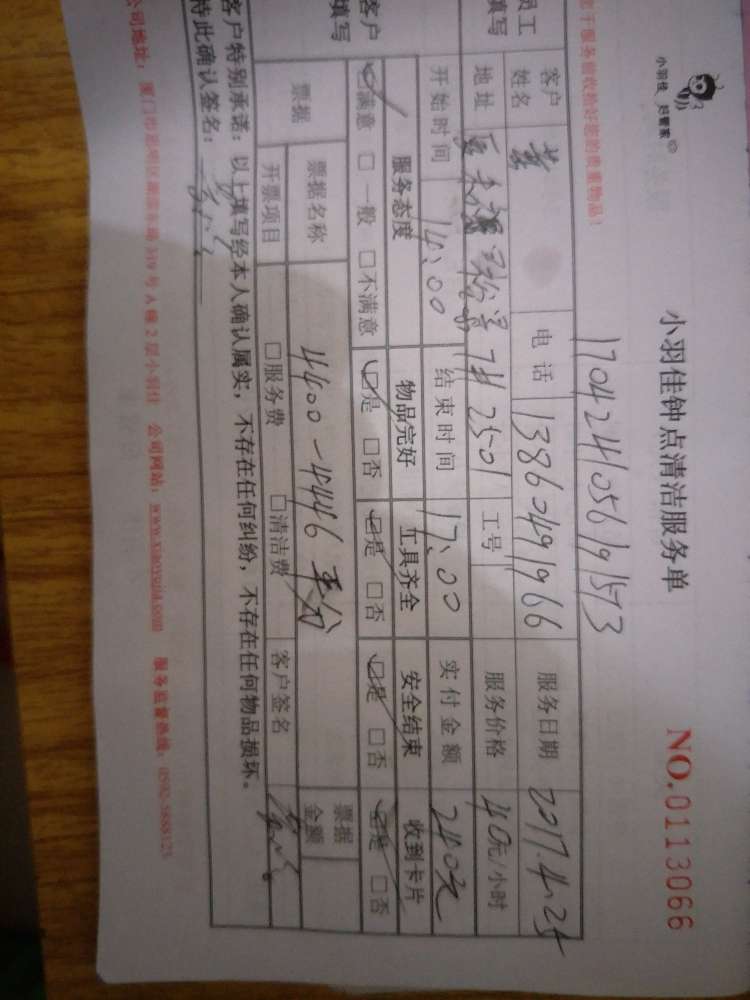 小羽佳 好管家
小羽佳钟点清洁服务单
NO.0113066
170424105619573
于服务前收拾好您的贵重物品！
员工填写
客户姓名 黄 电话 13860491966 服务日期 2017.4.24
地址 7# 2501 工号 服务价格 40元/小时
开始时间 14:00 结束时间 17:00 实付金额 240元
客户填写
服务态度 物品完好 工具齐全 安全结束 收到卡片
☑满意 □一般 □不满意 ☑是 □否 ☑是 □否 ☑是 □否 ☑是 □否
票据 票据名称 4400-4446 平分 票据金额
开票项目 □服务费 □清洁费 客户签名
客户特别承诺：以上填写经本人确认属实，不存在任何纠纷，不存在任何物品损坏。
特此确认签名：
公司地址：厦门市思明区湖滨东路319号A幢2层小羽佳 公司网站：www.xiaoyujia.com 服务监督热线：0592-5888123